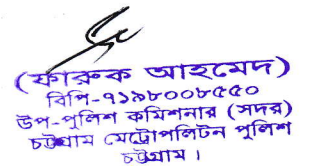 (ফারুক আহমেদ)
বিপি-৭১৯৮০০৮৫৫০
উপ-পুলিশ কমিশনার (সদর)
চট্টগ্রাম মেট্রোপলিটন পুলিশ
চট্টগ্রাম।